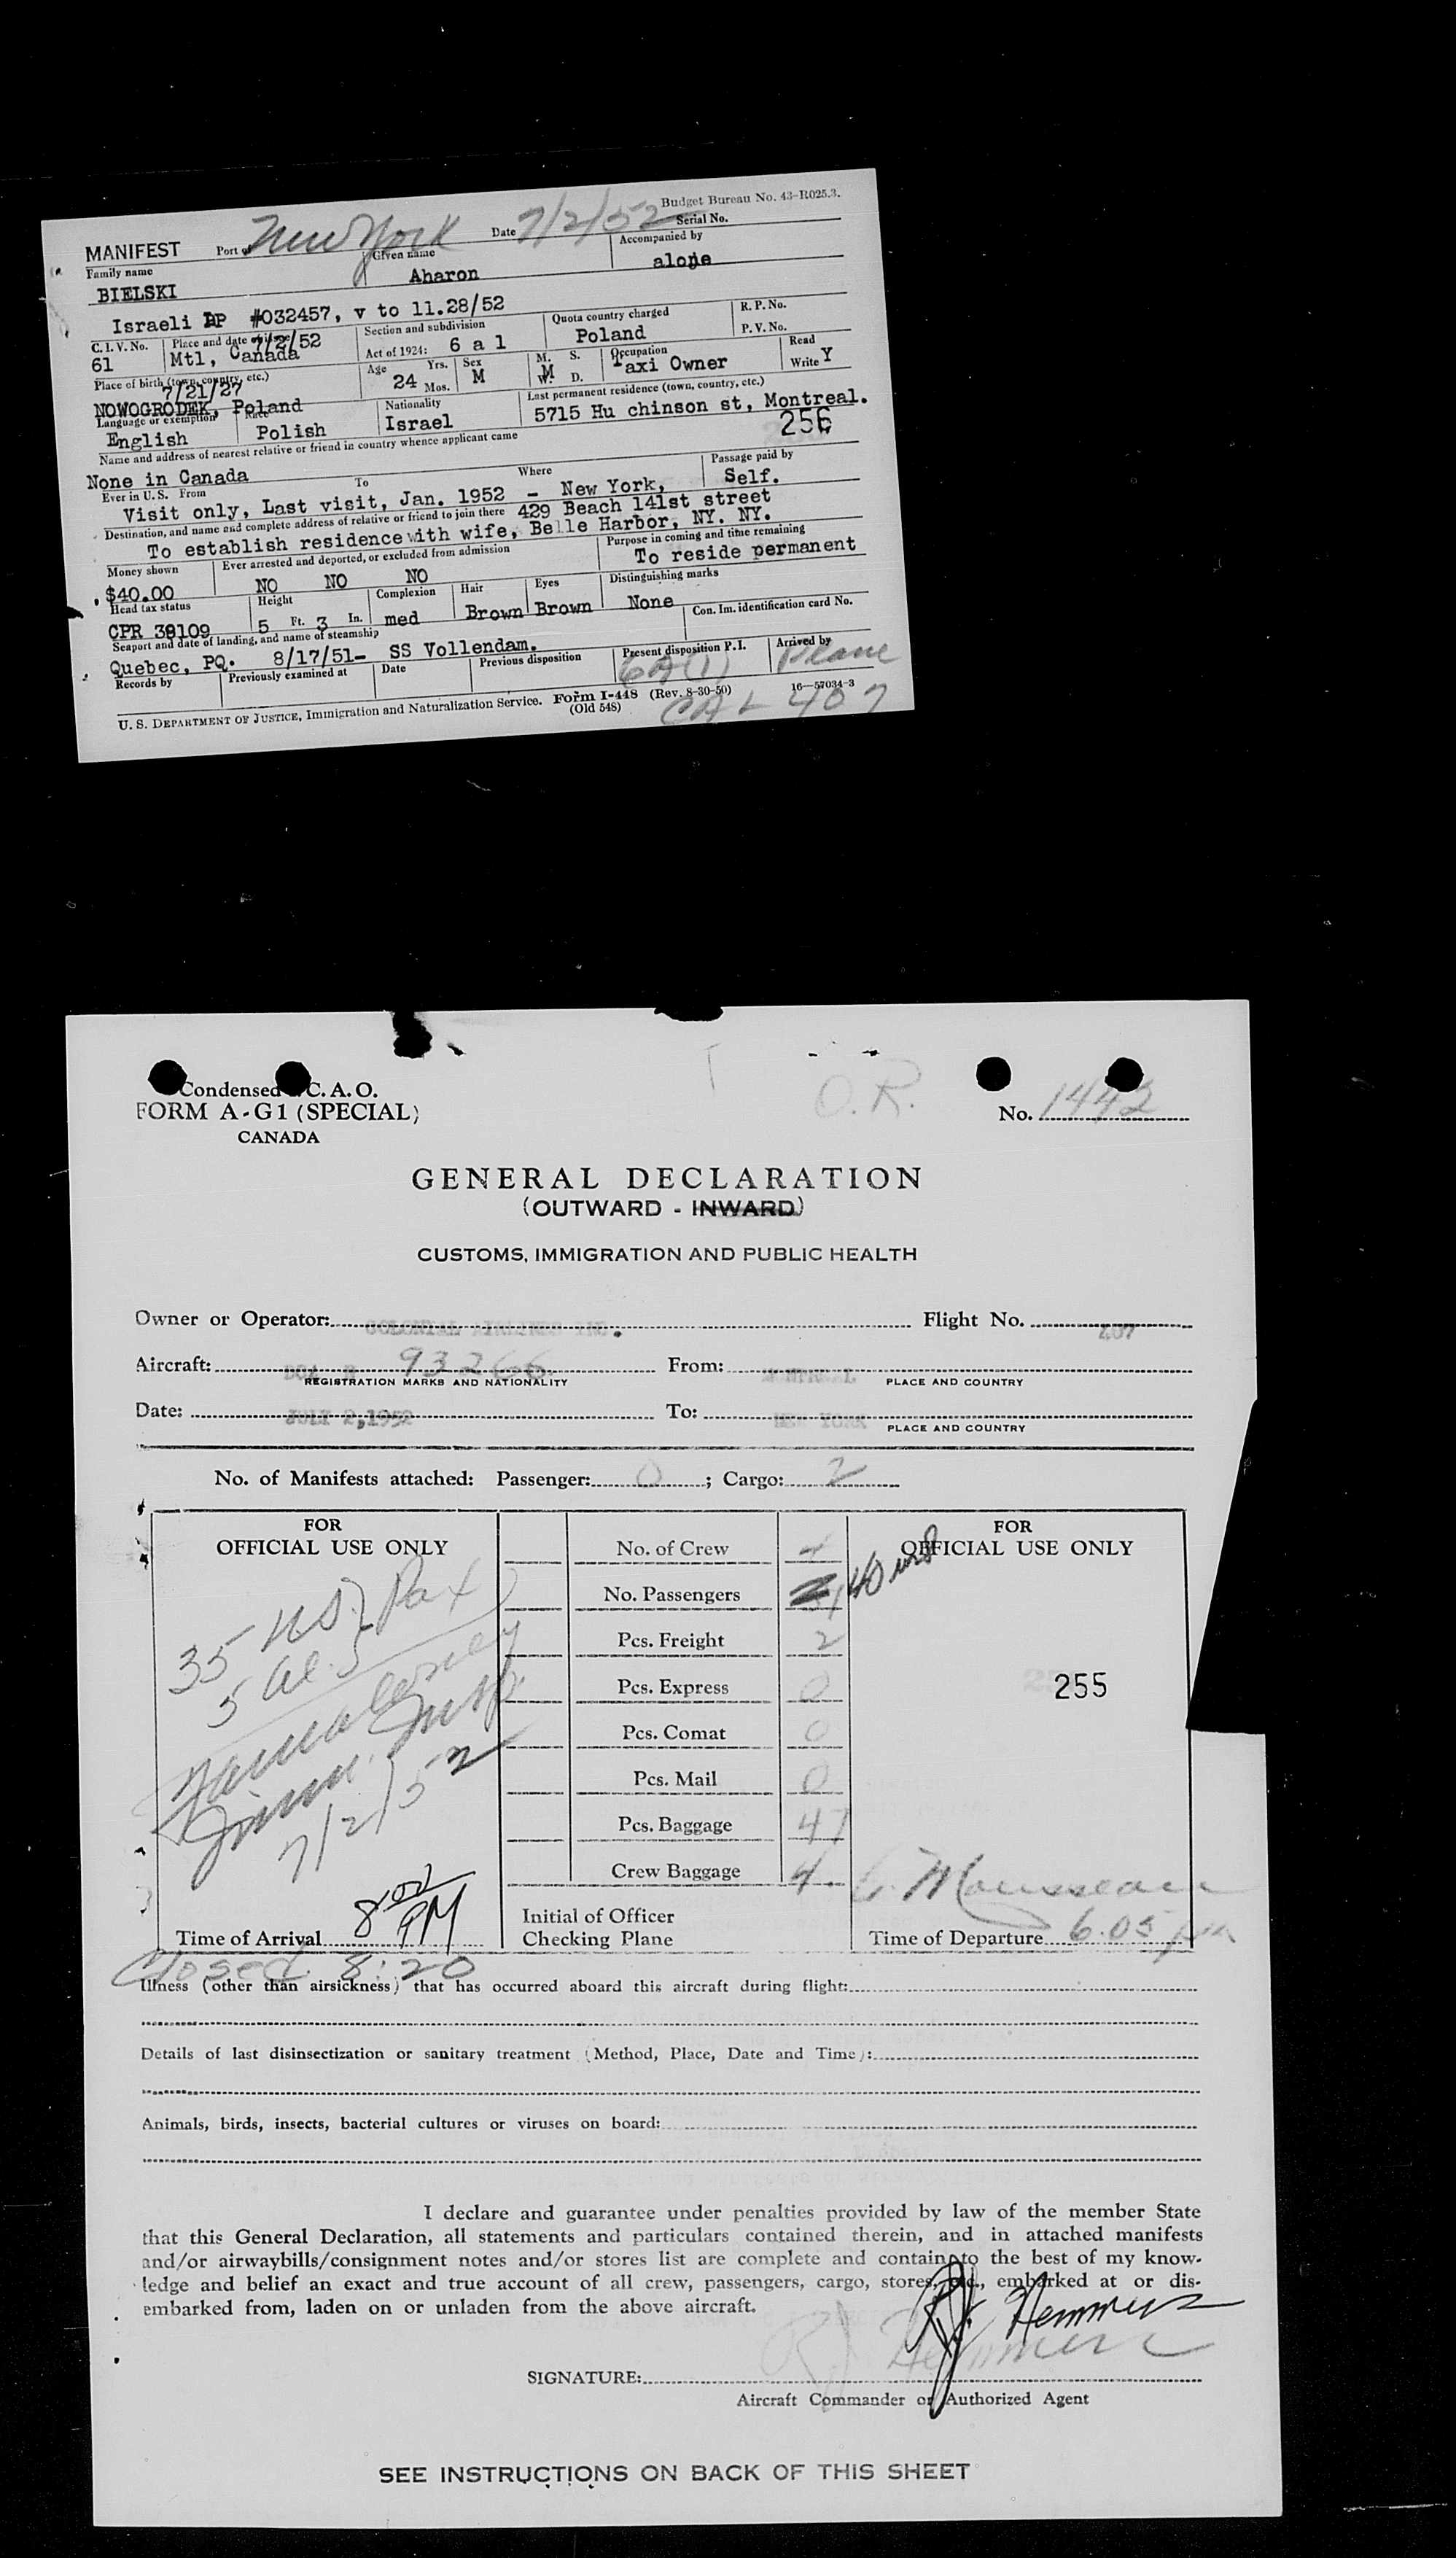 Budget Bureau No. 43-R025.3.
MANIFEST Port of New York Date 7/2/52 Serial No.
Family name Given name Accompanied by
BIELSKI Aharon alone
Israeli DP #032457, v to 11.28/52
C. I. V. No. Place and date of issue Section and subdivision Quota country charged R. P. No.
61 Mtl, Canada 7/2/52 Act of 1924: 6 a 1 Poland P. V. No.
Place of birth (town, country, etc.) Age Yrs. Mos. Sex M. S. W. D. Occupation Read Write
7/21/27 24 M M Taxi Owner Y
NOWOGRODEK, Poland
Language or exemption Race Nationality Last permanent residence (town, country, etc.)
English Polish Israel 5715 Hu chinson st, Montreal.
Name and address of nearest relative or friend in country whence applicant came 256
None in Canada
Ever in U. S. From To Where Passage paid by
Visit only, Last visit, Jan. 1952 - New York, Self.
Destination, and name and complete address of relative or friend to join there 429 Beach 141st street
To establish residence with wife, Belle Harbor, NY. NY.
Money shown Ever arrested and deported, or excluded from admission Purpose in coming and time remaining
$40.00 NO NO NO To reside permanent
Head tax status Height Complexion Hair Eyes Distinguishing marks
CPR 38109 5 Ft. 3 In. med Brown Brown None Con. Im. identification card No.
Seaport and date of landing, and name of steamship
Quebec, PQ. 8/17/51- SS Vollendam.
Records by Previously examined at Date Previous disposition Present disposition P.I. Arrived by
6A(1) Plane
U. S. DEPARTMENT OF JUSTICE, Immigration and Naturalization Service. Form I-448 (Rev. 8-30-50) 16—57034-3
(Old 548) CAL 407
Condensed C. A. O.
FORM A-G1 (SPECIAL)
CANADA
O.R.
No. 1442
GENERAL DECLARATION
(OUTWARD - INWARD)
CUSTOMS, IMMIGRATION AND PUBLIC HEALTH
Owner or Operator: COLONIAL AIRLINES INC. Flight No. 407
Aircraft: 93266 From: MONTREAL
REGISTRATION MARKS AND NATIONALITY PLACE AND COUNTRY
Date: JULY 2,1952 To: NEW YORK
PLACE AND COUNTRY
No. of Manifests attached: Passenger: 0 ; Cargo: 2
FOR
OFFICIAL USE ONLY
35 US } Pax
5 al.
Immi. Insp.
7/2/52
Time of Arrival 8:00 PM
Closed 8:20
No. of Crew 4
No. Passengers 40
Pcs. Freight 2
Pcs. Express 0
Pcs. Comat 0
Pcs. Mail 0
Pcs. Baggage 47
Crew Baggage 4
Initial of Officer
Checking Plane
FOR
OFFICIAL USE ONLY
255
Mousseau
Time of Departure 6.05 pm
Illness (other than airsickness) that has occurred aboard this aircraft during flight:
Details of last disinsectization or sanitary treatment (Method, Place, Date and Time):
Animals, birds, insects, bacterial cultures or viruses on board:
I declare and guarantee under penalties provided by law of the member State
that this General Declaration, all statements and particulars contained therein, and in attached manifests
and/or airwaybills/consignment notes and/or stores list are complete and contain to the best of my know-
ledge and belief an exact and true account of all crew, passengers, cargo, stores, etc., embarked at or dis-
embarked from, laden on or unladen from the above aircraft.
SIGNATURE:
Aircraft Commander or Authorized Agent
SEE INSTRUCTIONS ON BACK OF THIS SHEET